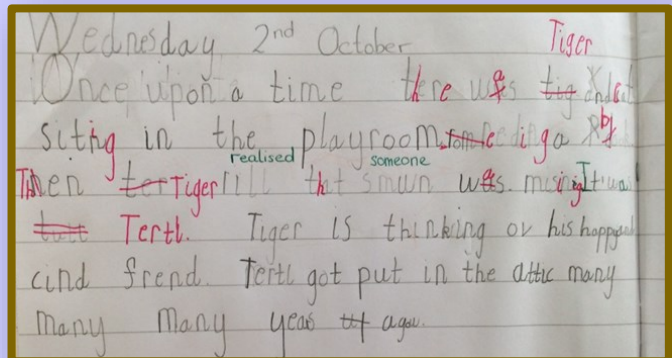 Wednesday 2nd October
Tiger
Once upon a time there was tig
siting in the playroom. a
realised someone
Then Tiger rill that smun was mising It wa
Tertl. Tiger is thinking ov his happy
cind frend. Tertl got put in the attic many
many many yeas agow.